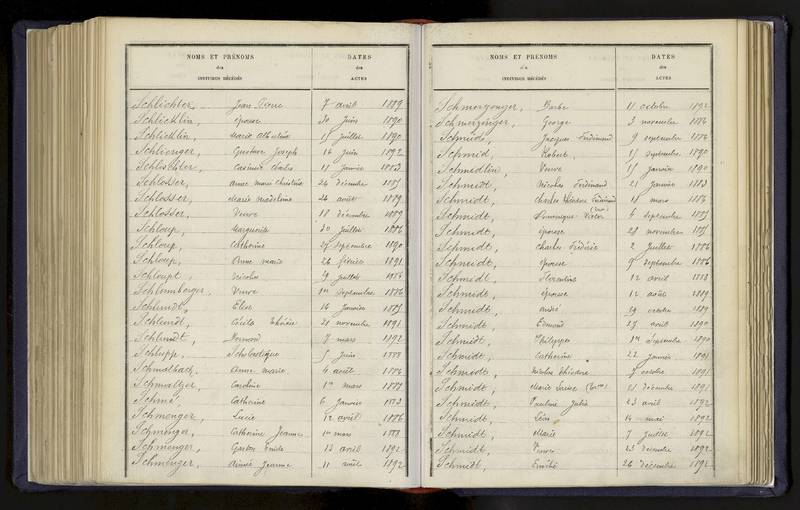 NOMS ET PRÉNOMS
des
INDIVIDUS DÉCÉDÉS
DATES
des
ACTES
Schlichter Jean Pierre 7 avril 1889
Schlicklin, épouse 30 juin 1890
Schlicklin, Marie Albertine 15 juillet 1890
Schlienger, Gustave Joseph 14 juin 1892
Schlichter, Casimir Charles 11 janvier 1883
Schlosser, Anne Marie Christine 24 décembre 1885
Schlosser, Marie Madeleine 24 août 1889
Schlosser, Veuve 18 décembre 1889
Schloup, Marguerite 30 juillet 1886
Schloup, Catherine 27 septembre 1890
Schloup, Anne Marie 26 février 1891
Schloupt, Nicolas 29 juillet 1886
Schlumberger, Veuve 1er septembre 1886
Schlundt, Elise 14 janvier 1885
Schlundt, Cécile 21 novembre 1891
Schlundt, Bernard 7 mars 1892
Schlupp, Scholastique 5 juin 1888
Schmalbach, Anne Marie 4 août 1886
Schmaltzer, Caroline 1er mars 1889
Schmé, Catherine 6 janvier 1883
Schmenger, Lucie 12 avril 1886
Schmenger, Catherine Jeanne 1er mars 1888
Schmenger, Gaston Emile 13 avril 1892
Schmenger, Aimée Jeanne 11 août 1892
NOMS ET PRÉNOMS
des
INDIVIDUS DÉCÉDÉS
DATES
des
ACTES
Schmerzenger, Barbe 11 octobre 1892
Schmerzinger, George 3 novembre 1886
Schmid, Jacques Ferdinand 9 septembre 1886
Schmid, Robert 15 septembre 1890
Schmedlin, Veuve 15 janvier 1890
Schmidt, Nicolas Ferdinand 21 janvier 1883
Schmidt, Charles Théodore Ferdinand 11 mars 1886
Schmidt, Dominique Victor 4 septembre 1885
Schmidt, épouse 28 novembre 1885
Schmidt, Charles Frédéric 2 juillet 1886
Schmidt, épouse 9 septembre 1886
Schmidt, Florentine 12 avril 1888
Schmidt, épouse 12 août 1889
Schmidt, André 29 octobre 1889
Schmidt, Edmond 27 avril 1890
Schmidt, Philippe 1er septembre 1890
Schmidt, Catherine 22 janvier 1891
Schmidt, Nicolas Théodore 7 octobre 1891
Schmidt, Marie Louise 11 décembre 1891
Schmidt, Pauline Julie 23 avril 1892
Schmidt, Léon 14 mai 1892
Schmidt, Marie 7 juillet 1892
Schmidt, Veuve 23 décembre 1892
Schmidt, Emilie 26 décembre 1892